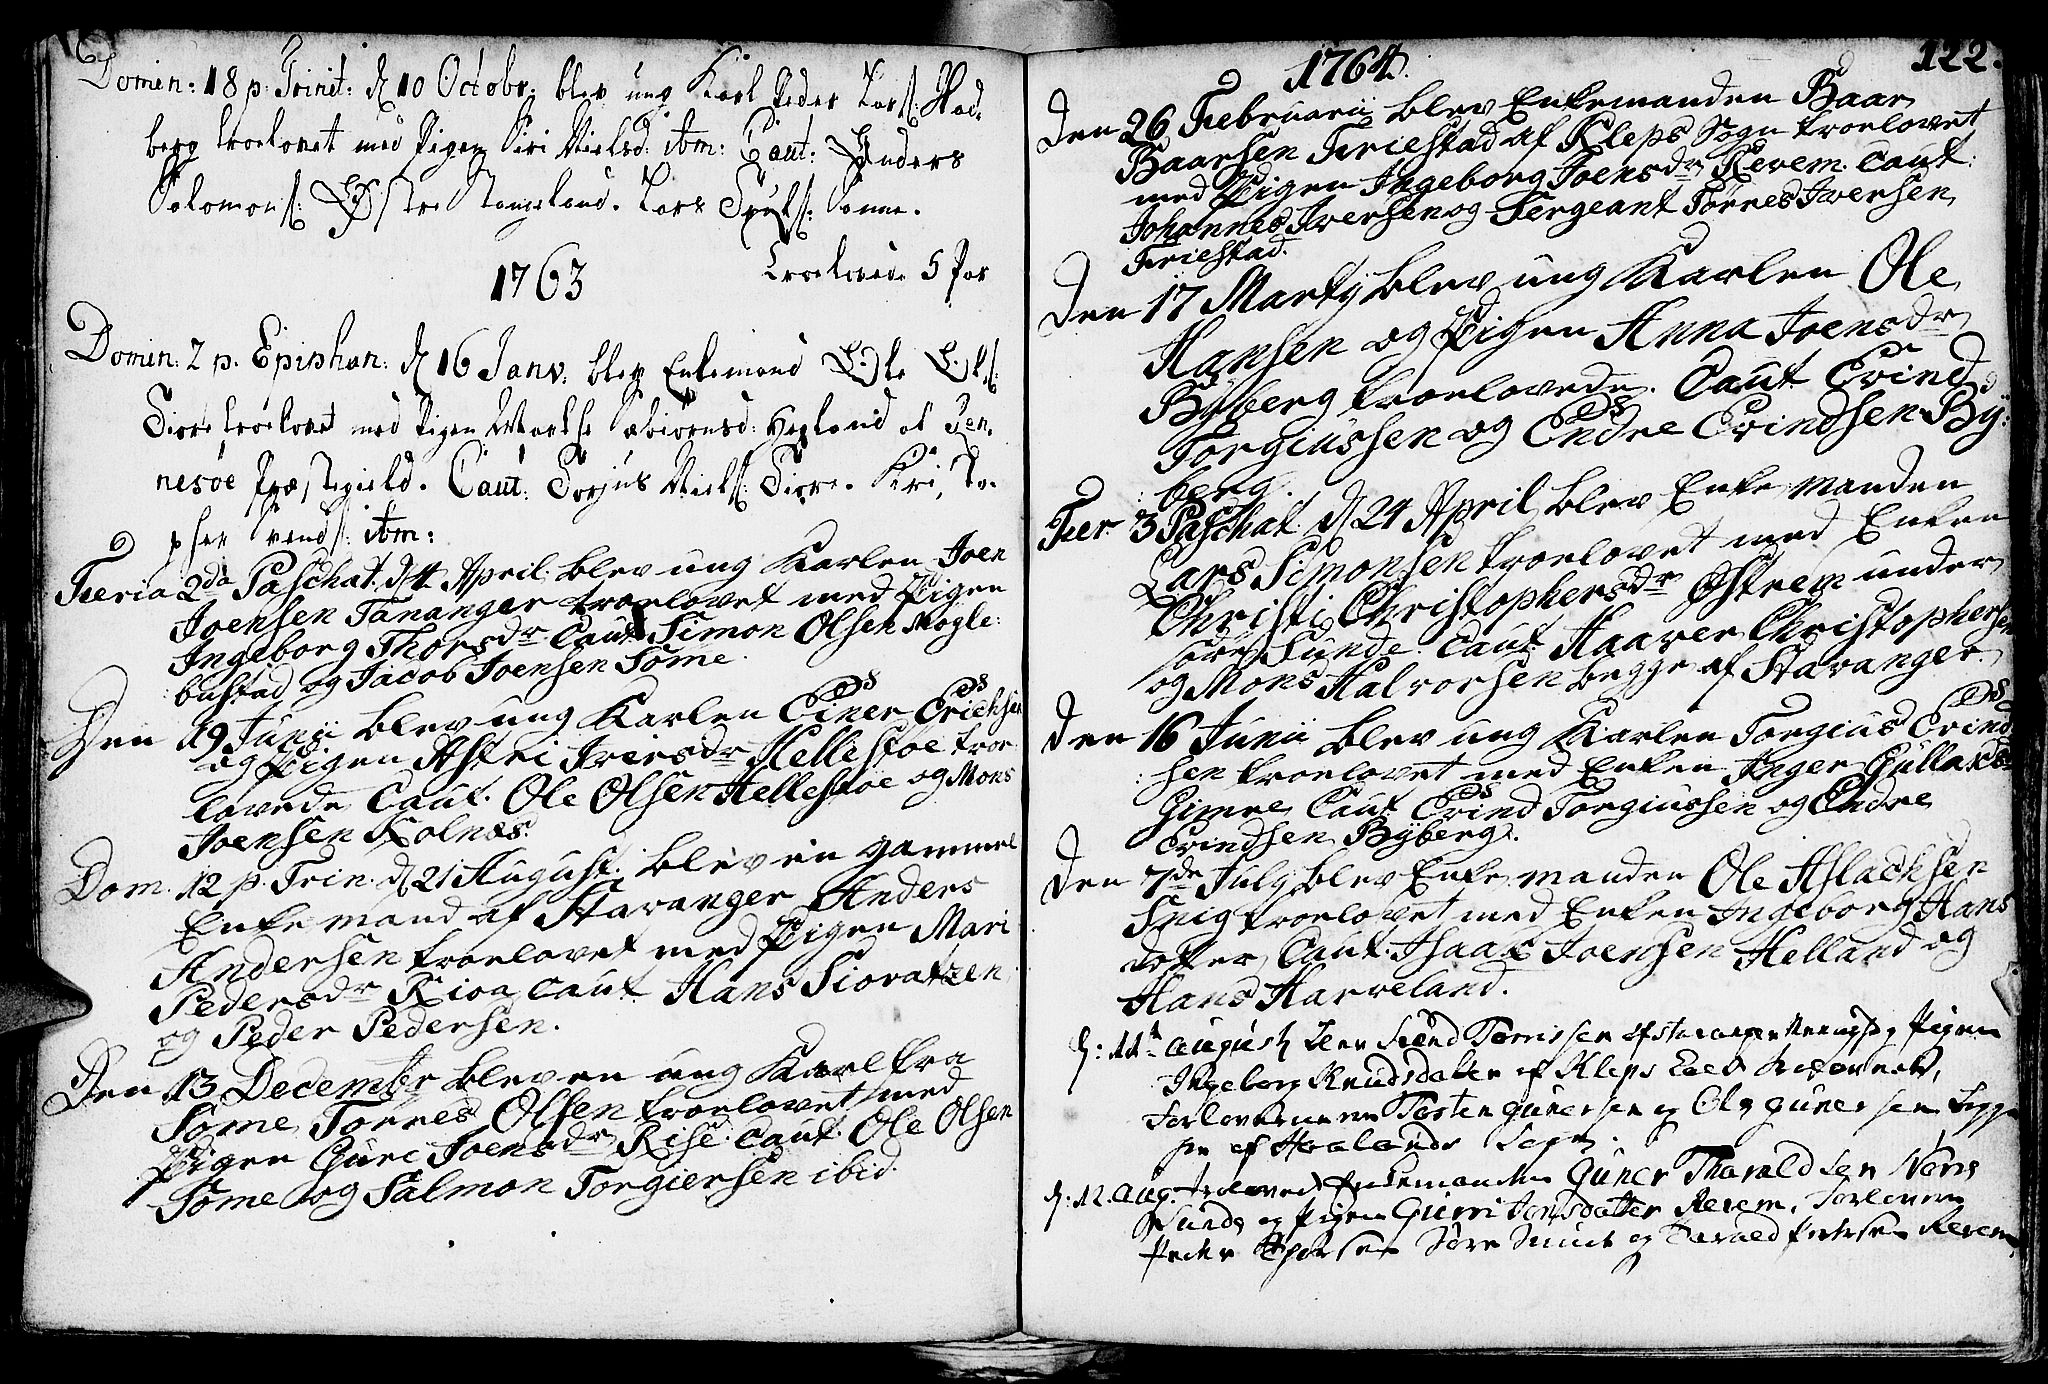 Domin: 18 p. Trinit: d 10 Octobr: blev ung Karl Peder Lars: Had-
berg troelovet med Pigen Siri Nielsd: ibm: Caut: Anders
Salomons: Østre Stangeland. Lars Sømme.
Troelovede 5 Par
1763
Domin: 2 p. Epiphan: d 16 Janv: blev Enkemand Ole
Tiore troelovet med Pigen Marthe Hegland af Jen-
nesøe Præstegield. Caut: Torjus Niels: Tiore. Kri, to-
pher Svends: ibm:
Feria 2da Paschat. d 4 April: blev ung Karlen Joen
Joensen Tananger troelovet med Pigen
Ingeborg Thorsdr Caut Simon Olsen Mogle:
bustad og Jacob Joensen Some.
Den 19 Junii blev ung Karlen Einer Erichsen
og Pigen Astri Iversdr Hellestøe troe
lovede Caut. Ole Olsen Hellestøe og Mons
Joensen Kolnæs.
Dom. 12 p. Trin. d 21 August. blev en gammel
Enkemand af Stavanger Anders
Andersen troelovet med Pigen Mari
Pedersdr Rioa Caut Hans Sioratzen
og Peder Pedersen.
Den 13 Decembr blev en ung Karl fra
Some Tørres Olsen troelovet med
Pigen Guri Joensdr Rise. Caut. Ole Olsen
Some og Salmon Torgiersen ibid.
122.
1764.
Den 26 Februarii blev Enkemanden Baar
Baarsen Friestad af Kleps Sogn troelovet
med Pigen Ingeborg Joensdr Revem. Caut:
Johannes Iversen og Sergeant Tørres Iversen
Friestad.
Den 17 Martÿ blev ung Karlen Ole
Hansen og Pigen Anna Joensdr
Bÿberg troelovede. Caut Erind
Torgiussen og Endre Erindsen Bÿ:
berg.
Fer. 3 Paschat. d 24 April blev Enkemanden
Lars Simonsen troelovet med Enken
Christi Christophersdr Østrem under
søre Sunde. Caut. Haaver Christophersen
og Mons Halvorsen begge af Stavanger.
Den 16 Junii blev ung Karlen Torgius Erind
sen troelovet med Enken Inger Gullaksdr
Gimre Caut Erind Torgiussen og Endre
Erindsen Bÿberg.
Den 7de July blev Enkemanden Ole Aslachsen
Snig troelovet med Enken Ingeborg Hans
dotter Caut. Isaak Joensen Helland og
Hans Harveland.
d: 11t august blev Svend Tørrissen af Stavanger og Pigen
Ingeborg Knudsdatter af Kleps
Forloverne Tosten gunersen og Ole gunersen begge
af Haalands Sogn.
d: 12. aug. trolovet Enkemanden Guner Tharaldsen Nøre
Sunde og Pigen Gurri Jonsdatter Revem, Forlovere
Peder Søre Sunde og Tarald Pedersen Revem